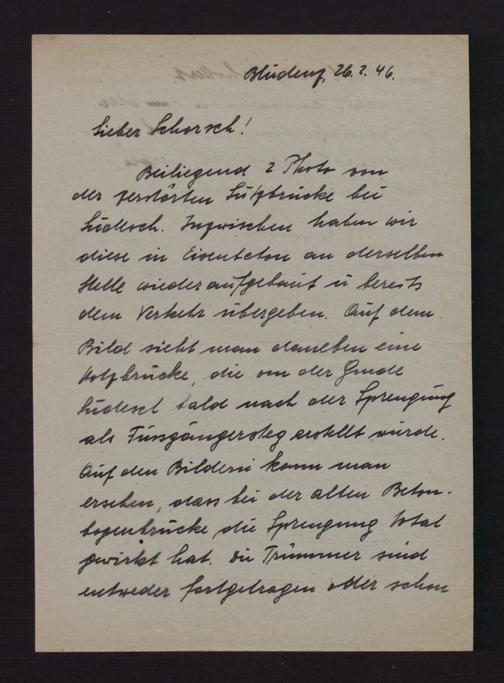 Bludenz, 26.2.46.
Lieber Schorsch!
Beiliegend 2 Photo von
der zerstörten Lutzbrücke bei
Ludesch. Inzwischen haben wir
diese in Eisenbeton an derselben
Stelle wiederaufgebaut u bereits
dem Verkehr übergeben. Auf dem
Bild sieht man daneben eine
Holzbrücke, die von der Gmde
Ludesch bald nach der Sprengung
als Fussgängersteg erstellt wurde.
Auf den Bildern kann man
ersehen, dass bei der alten Beton-
bogenbrücke die Sprengung total
gewirkt hat. Die Trümmer sind
entweder fortgetragen oder schon